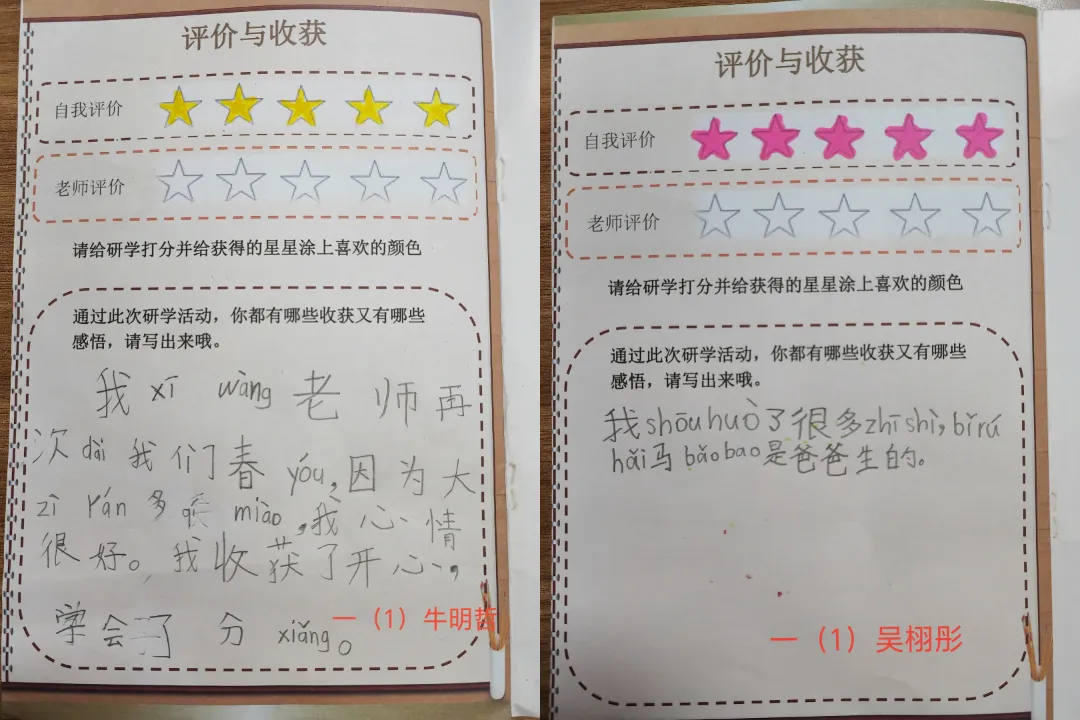 评价与收获
自我评价
老师评价
请给研学打分并给获得的星星涂上喜欢的颜色
通过此次研学活动，你都有哪些收获又有哪些
感悟，请写出来哦。
我 xī wàng 老师再
次 dài 我们春 yóu，因为大
zì rán 多 miào，我心情
很好。我收获了开心，
学会了分 xiǎng。
一（1）牛明哲
评价与收获
自我评价
老师评价
请给研学打分并给获得的星星涂上喜欢的颜色
通过此次研学活动，你都有哪些收获又有哪些
感悟，请写出来哦。
我shōuhuò了很多zhīshì，bǐrú
hǎi马bǎobao是爸爸生的。
一（1）吴栩彤